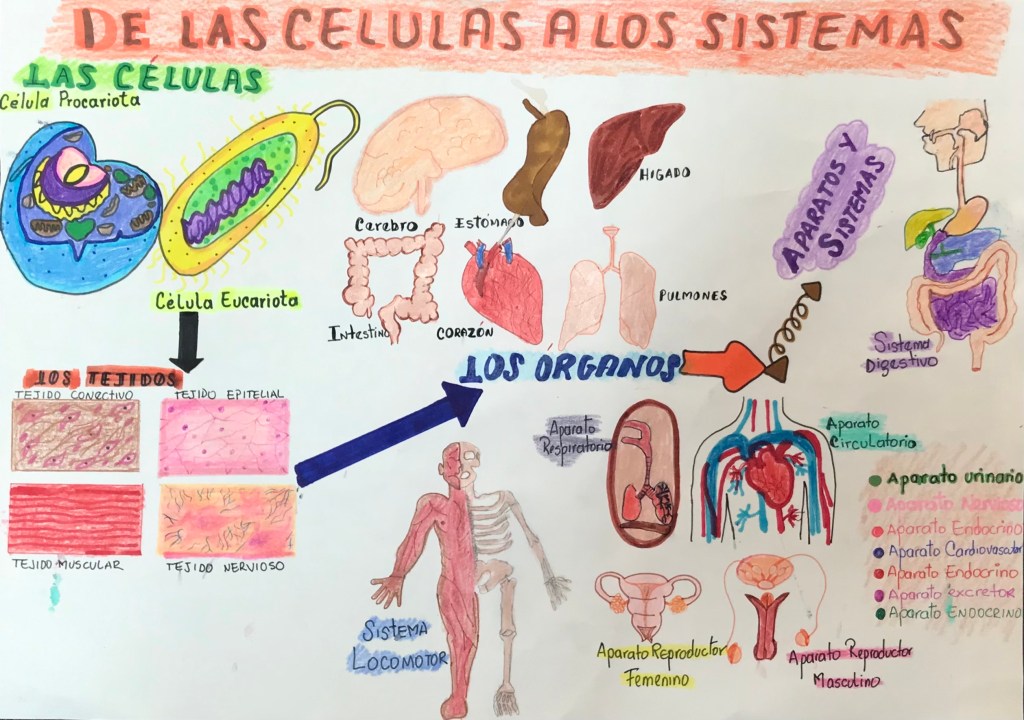 DE LAS CELULAS A LOS SISTEMAS
LAS CÉLULAS
Célula Procariota
Célula Eucariota
Cerebro
ESTÓMAGO
HIGADO
Intestino
CORAZÓN
PULMONES
LOS TEJIDOS
TEJIDO CONECTIVO
TEJIDO EPITELIAL
TEJIDO MUSCULAR
TEJIDO NERVIOSO
LOS ÓRGANOS
APARATOS Y
SISTEMAS
Sistema
Digestivo
Aparato
Respiratorio
Aparato
Circulatorio
SISTEMA
LOCOMOTOR
Aparato Reproductor
Femenino
Aparato Reproductor
Masculino
Aparato urinario
Aparato Nervioso
Aparato Endocrino
Aparato Cardiovascular
Aparato Endocrino
Aparato excretor
Aparato ENDOCRINO